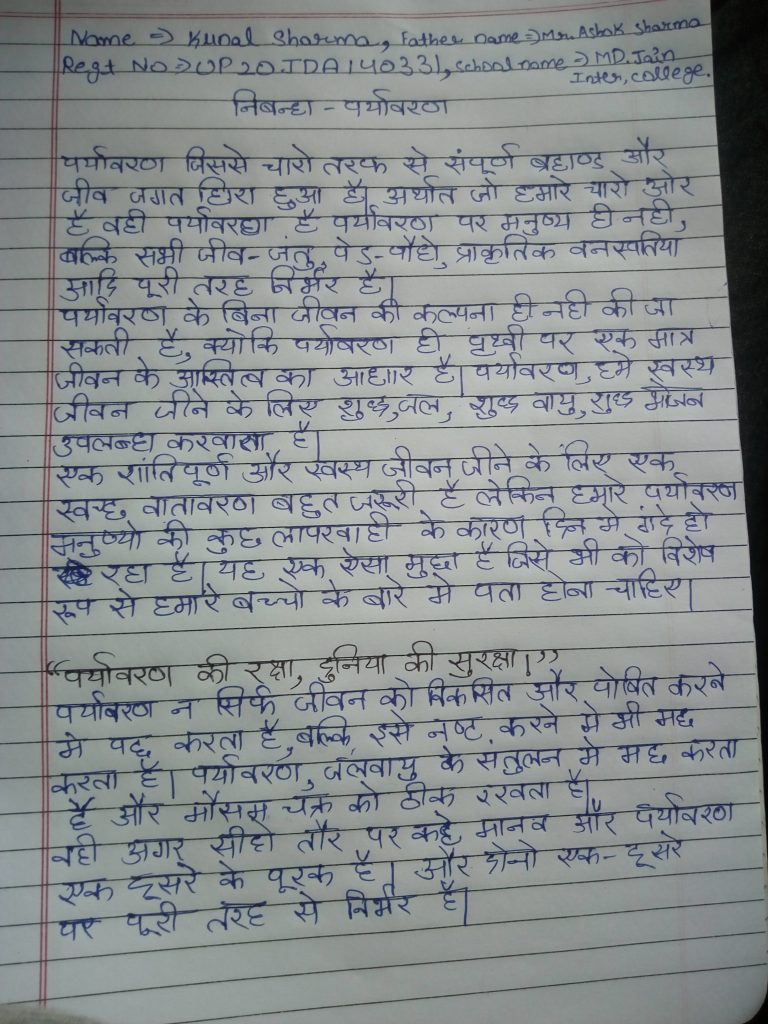 Name ⇒ Kunal Sharma, Father name ⇒ Mr. Ashok Sharma
Regt No ⇒ UP20JDA140331, School name ⇒ MD. Jain
Inter, college.
निबन्ध - पर्यावरण
पर्यावरण जिससे चारो तरफ से संपूर्ण ब्रहाण्ड और
जीव जगत घिरा हुआ है। अर्थात जो हमारे चारो ओर
है वही पर्यावरण है पर्यावरण पर मनुष्य ही नही,
बल्कि सभी जीव-जंतु, पेड़-पौधे, प्राकृतिक वनस्पतिया
आदि पूरी तरह निर्भर है।
पर्यावरण के बिना जीवन की कल्पना ही नही की जा
सकती है, क्योकि पर्यावरण ही पृथ्वी पर एक मात्र
जीवन के आस्तित्व का आधार है। पर्यावरण, हमे स्वस्थ
जीवन जीने के लिए शुद्ध, जल, शुद्ध वायु, शुद्ध भोजन
उपलब्ध करवाता है।
एक शांतिपूर्ण और स्वस्थ जीवन जीने के लिए एक
स्वच्छ वातावरण बहुत जरूरी है लेकिन हमारे पर्यावरण
मनुष्यो की कुछ लापरवाही के कारण दिन मे गंदे हो
रहा है। यह एक ऐसा मुद्दा है जिसे भी को विशेष
रूप से हमारे बच्चो के बारे मे पता होना चाहिए।
“पर्यावरण की रक्षा, दुनिया की सुरक्षा।”
पर्यावरण न सिर्फ जीवन को विकसित और पोषित करने
मे पद्द करता है, बल्कि इसे नष्ट करने मे भी मद्द
करता है। पर्यावरण, जलवायु के संतुलन मे मद्द करता
है और मौसम चक्र को ठीक रखता है।
वही अगर सीधे तौर पर कहे मानव और पर्यावरण
एक दूसरे के पूरक है। और दोनो एक-दूसरे
पर पूरी तरह से निर्भर है।